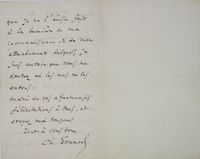 que je ne l'eusse fait
à la lumière de ma
reconnaissance et de mon
attachement desquels je
suis certain que vous ne
doutez ni les uns ni les
autres.
merci de vos affectueuses
félicitations à tous, et
croyez moi toujours
Tout à vous
Ch. Gounod